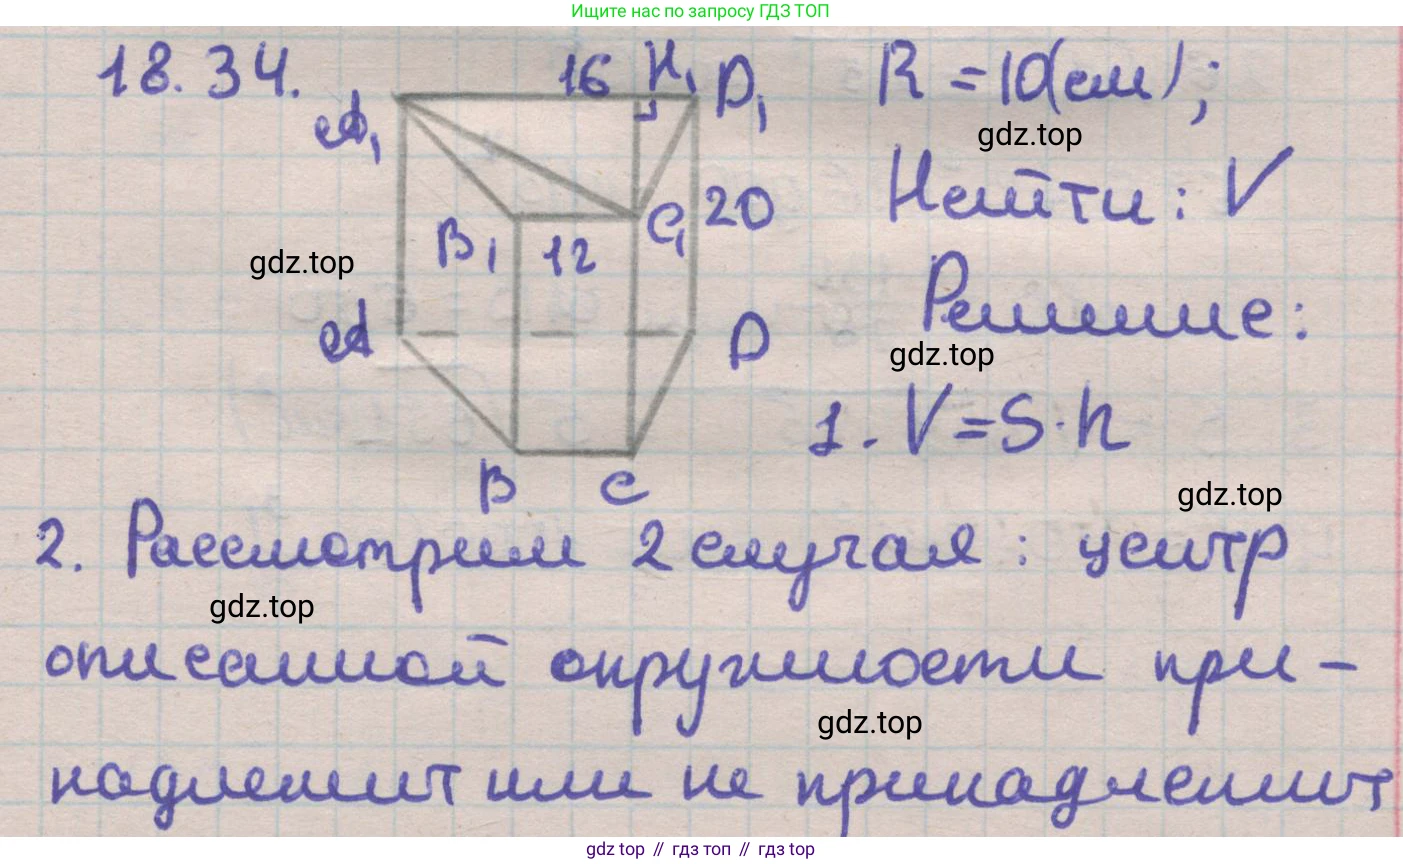 Ищите нас по запросу ГДЗ ТОП
18.34.
16 H₁ D₁
A₁
R = 10(см);
gdz.top
Найти: V
20
B₁ 12 C₁
gdz.top
Решение:
A D
gdz.top
1. V=S·h
B C
gdz.top
2. Рассмотрим 2 случая: центр
gdz.top
описанной окружности при-
gdz.top
надлежит или не принадлежит
gdz top // гдз топ // gdz top